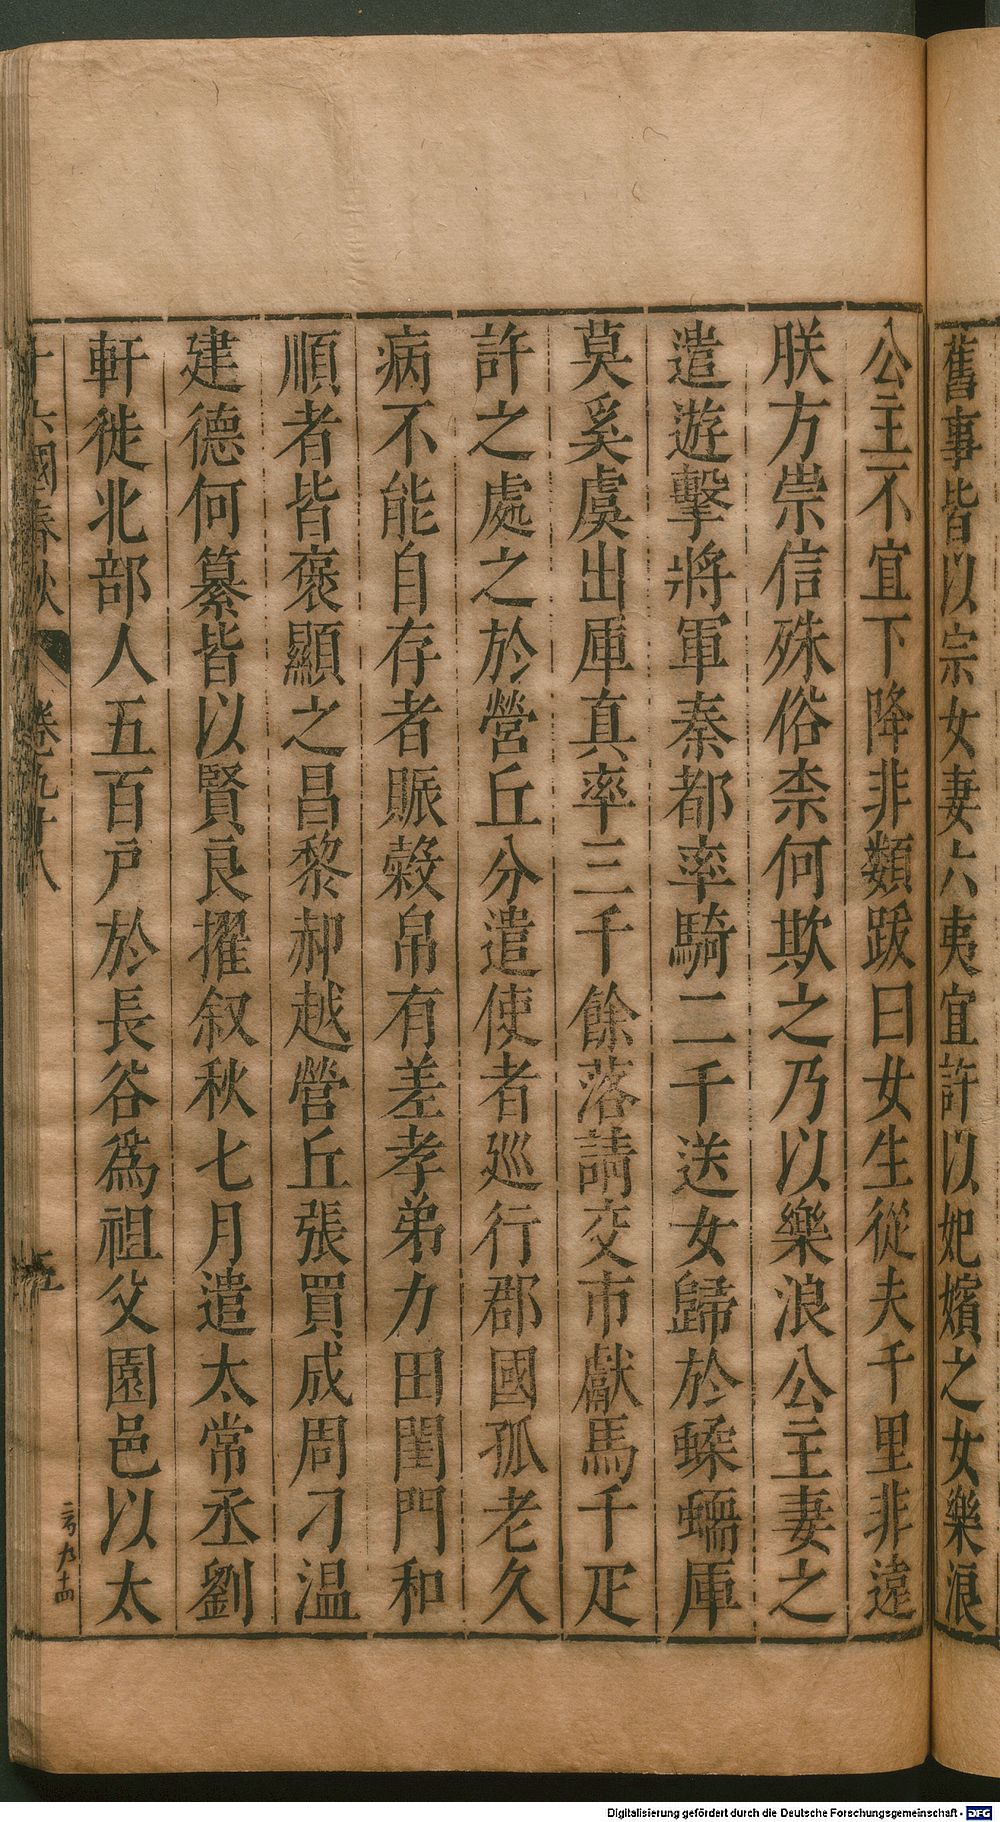 舊事皆以宗女妻六夷宜許以妃嬪之女樂浪
公主不宜下降非類跋曰女生從夫千里非遠
朕方崇信殊俗柰何欺之乃以樂浪公主妻之
遣遊擊將軍秦都率騎二千送女歸於蝚蠕庫
莫奚虞出庫真率三千餘落請交市獻馬千疋
許之處之於營丘分遣使者巡行郡國孤老久
病不能自存者賑榖帛有差孝弟力田閨門和
順者皆褒顯之昌黎郝越營丘張買成周刁溫
建德何纂皆以賢良擢叙秋七月遣太常丞劉
軒徙北部人五百戶於長谷爲祖父園邑以太
十六國春秋 卷九十八 五
Digitalisierung gefördert durch die Deutsche Forschungsgemeinschaft - DFG